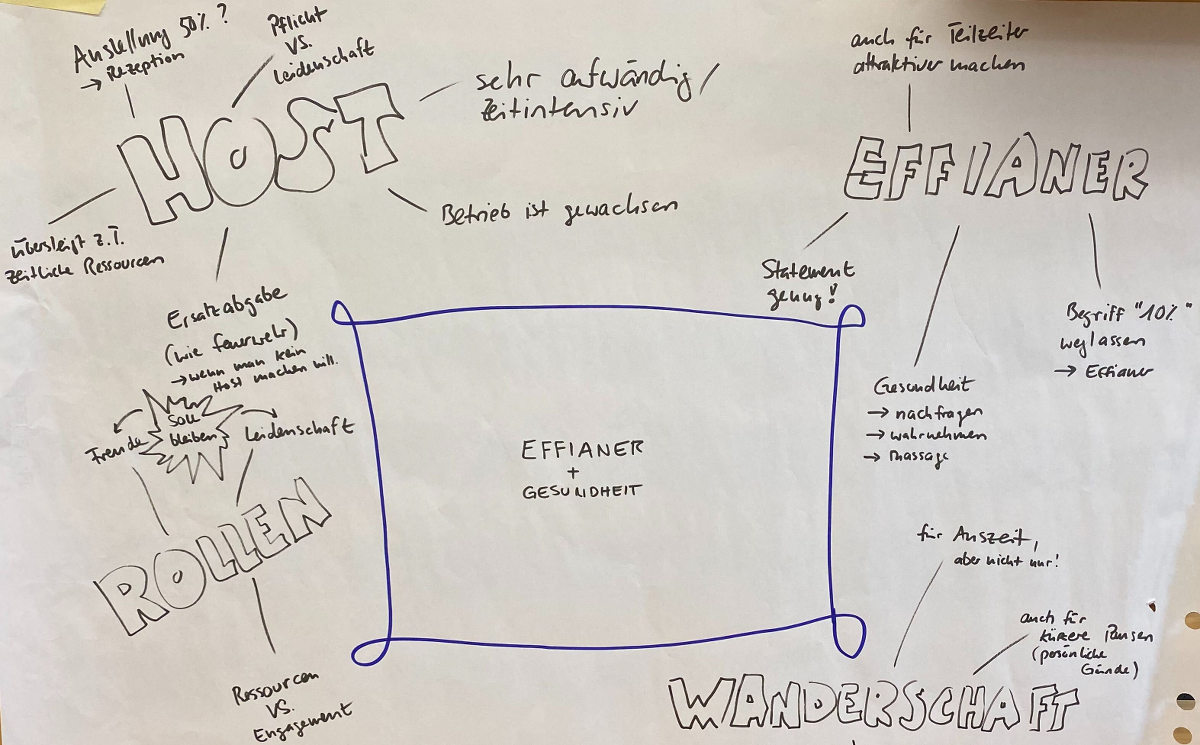 Anstellung 50% ?
→ Rezeption
Pflicht
vs.
Leidenschaft
HOST
sehr aufwändig/
zeitintensiv
Betrieb ist gewachsen
übersteigt z.T.
zeitliche Ressourcen
Ersatzabgabe
(wie Feuerwehr)
→ wenn man kein
Host machen will.
Soll
bleiben
Freude
Leidenschaft
ROLLEN
Ressourcen
vs.
Engagement
EFFIANER
+
GESUNDHEIT
auch für Teilzeiter
attraktiver machen
EFFIANER
Statement
genug!
Gesundheit
→ nachfragen
→ wahrnehmen
→ Massage
Begriff "10%"
weglassen
→ Effianer
für Auszeit,
aber nicht nur!
auch für
kürzere Pausen
(persönliche
Gründe)
WANDERSCHAFT